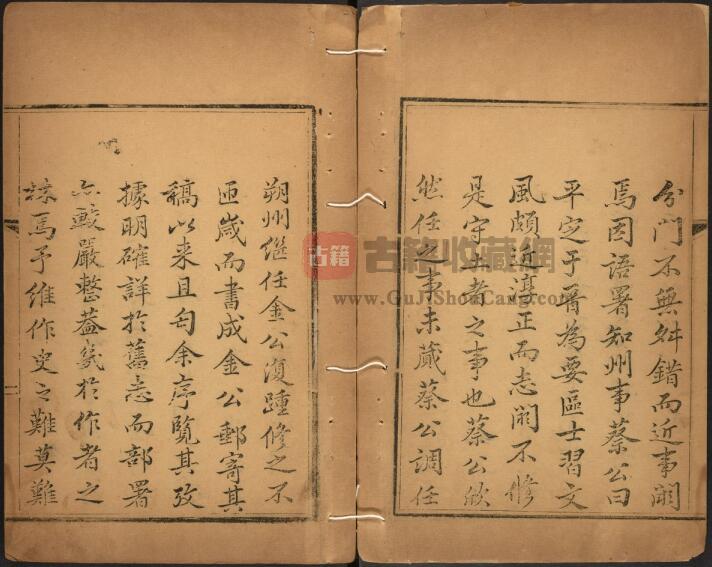 分門不無舛錯而近事闕
焉因語署知州事蔡公曰
平定于晋為要區士習文
風頗近淳正而志闕不修
是守土者之事也蔡公欣
然任之事未蕆蔡公調任
朔州繼任金公復踵修之不
匝歲而書成金公郵寄其
稿以来且匄余序覽其攷
據明確詳於舊志而部署
亦較嚴整蓋幾於作者之
林焉予維作史之難莫難
古籍
古籍收藏網
www.GuJiShouCang.com